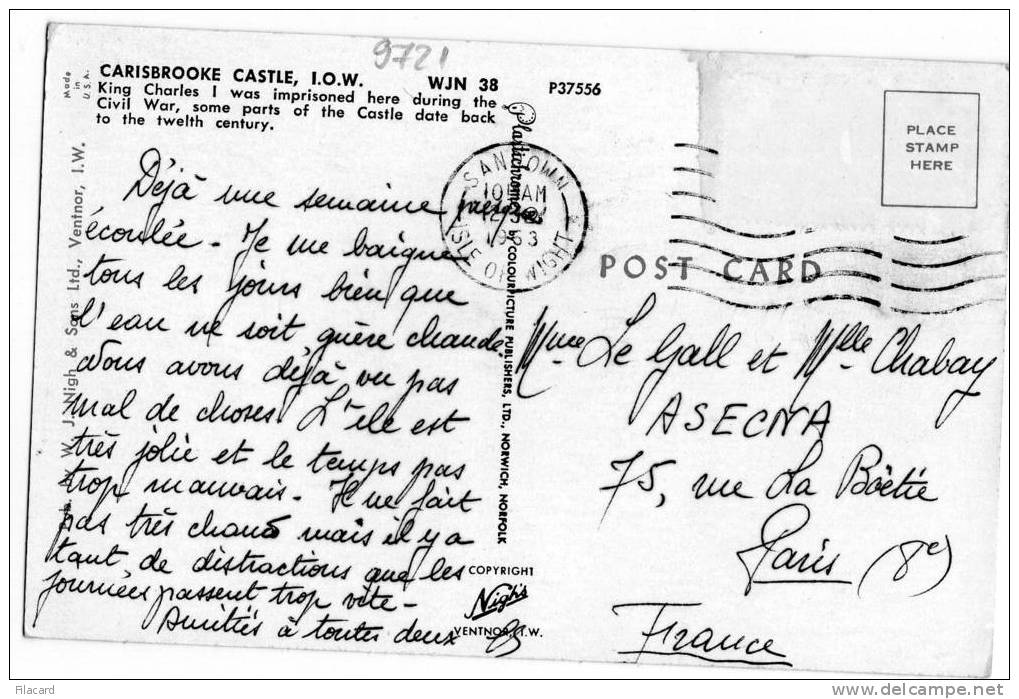 9721
Made
in
U.S.A.
CARISBROOKE CASTLE, I.O.W. WJN 38 P37556
King Charles I was imprisoned here during the
Civil War, some parts of the Castle date back
to the twelth century.
W. J. Nigh & Sons Ltd., Ventnor, I.W.
Plastichrome by COLOURPICTURE PUBLISHERS, LTD., NORWICH, NORFOLK
SANDOWN
10 AM
1963
ISLE OF WIGHT
PLACE
STAMP
HERE
POST CARD
Déjà une semaine
écoulée - Je me baigne
tous les jours bien que
l'eau ne soit guère chaude.
Nous avons déjà vu pas
mal de choses. L'île est
très jolie et le temps pas
trop mauvais - Il ne fait
pas très chaud mais il y a
tant de distractions que les
journées passent trop vite -
Amitiés à toutes deux
Mme Le Gall et Mlle Chabay
ASECNA
75, rue La Boëtie
Paris (8e)
France
COPYRIGHT
Nigh's
VENTNOR, I.W.
Filacard
delcampe.net